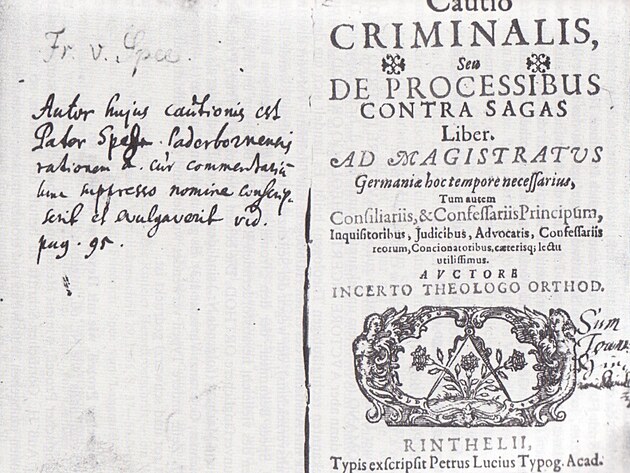 Fr. v. Spee.
Autor hujus cautionis est
Pater Spee. Paderbornensis
rationem cur commentariū
suppresso nomine conscrip-
serit et evulgaverit vid.
pag. 95.
Cautio
CRIMINALIS,
Seu
DE PROCESSIBUS
CONTRA SAGAS
Liber.
AD MAGISTRATUS
Germaniæ hoc tempore necessarius,
Tum autem
Consiliariis, & Confessariis Principum,
Inquisitoribus, Judicibus, Advocatis, Confessariis
reorum, Concionatoribus, cæterisq; lectu
utilissimus.
AVCTORE
INCERTO THEOLOGO ORTHOD.
Sum
RINTHELII,
Typis exscripsit Petrus Lucius Typog. Acad.